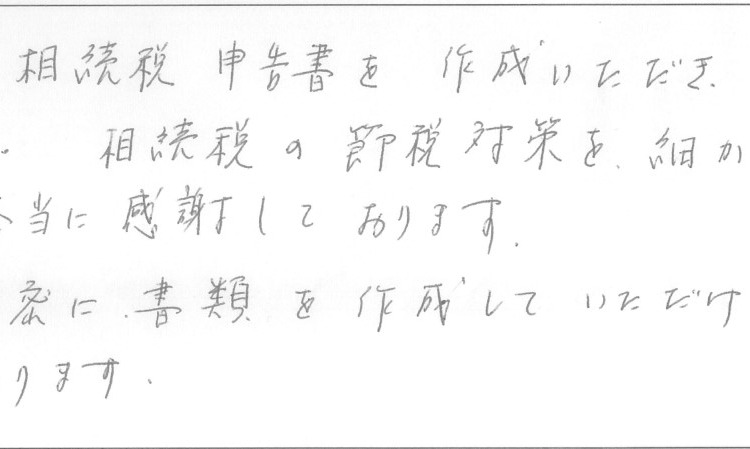 相続税 申告書を 作成いただき、
。 相続税の節税対策を、細か
当に感謝しております。
密に、書類を作成していただけ
ります。